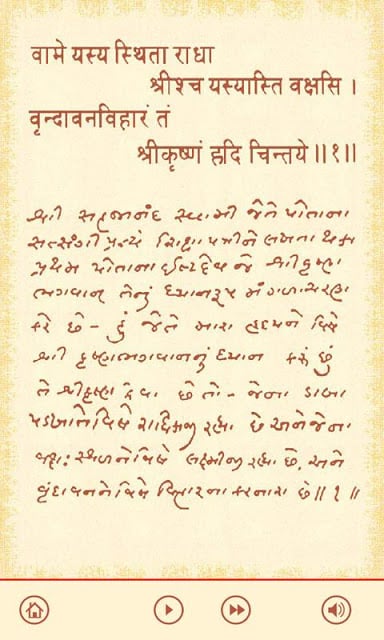 वामे यस्य स्थिता राधा
श्रीश्च यस्यास्ति वक्षसि ।
वृन्दावनविहारं तं
श्रीकृष्णं हृदि चिन्तये ॥१॥
શ્રી સહજાનંદ સ્વામી જેતે પોતાના
સત્સંગી પ્રત્યે શિક્ષાપત્રીને લખતા થકા
પ્રથમ પોતાના ઈષ્ટદેવ જે શ્રીકૃષ્ણ
ભગવાન્ તેનું ધ્યાનરૂપ મંગળાચરણ
કરે છે - હું જેતે મારા હૃદયને વિષે
શ્રી કૃષ્ણભગવાનનું ધ્યાન કરું છું
તે શ્રીકૃષ્ણ કેવા છે તો - જેના ડાબા
પડખાને વિષે રાધિકાજી રહ્યાં છે અને જેના
વક્ષઃસ્થળને વિષે લક્ષ્મીજી રહ્યાં છે, અને
વૃંદાવનને વિષે વિહારના કરનારા છે॥ ૧ ॥